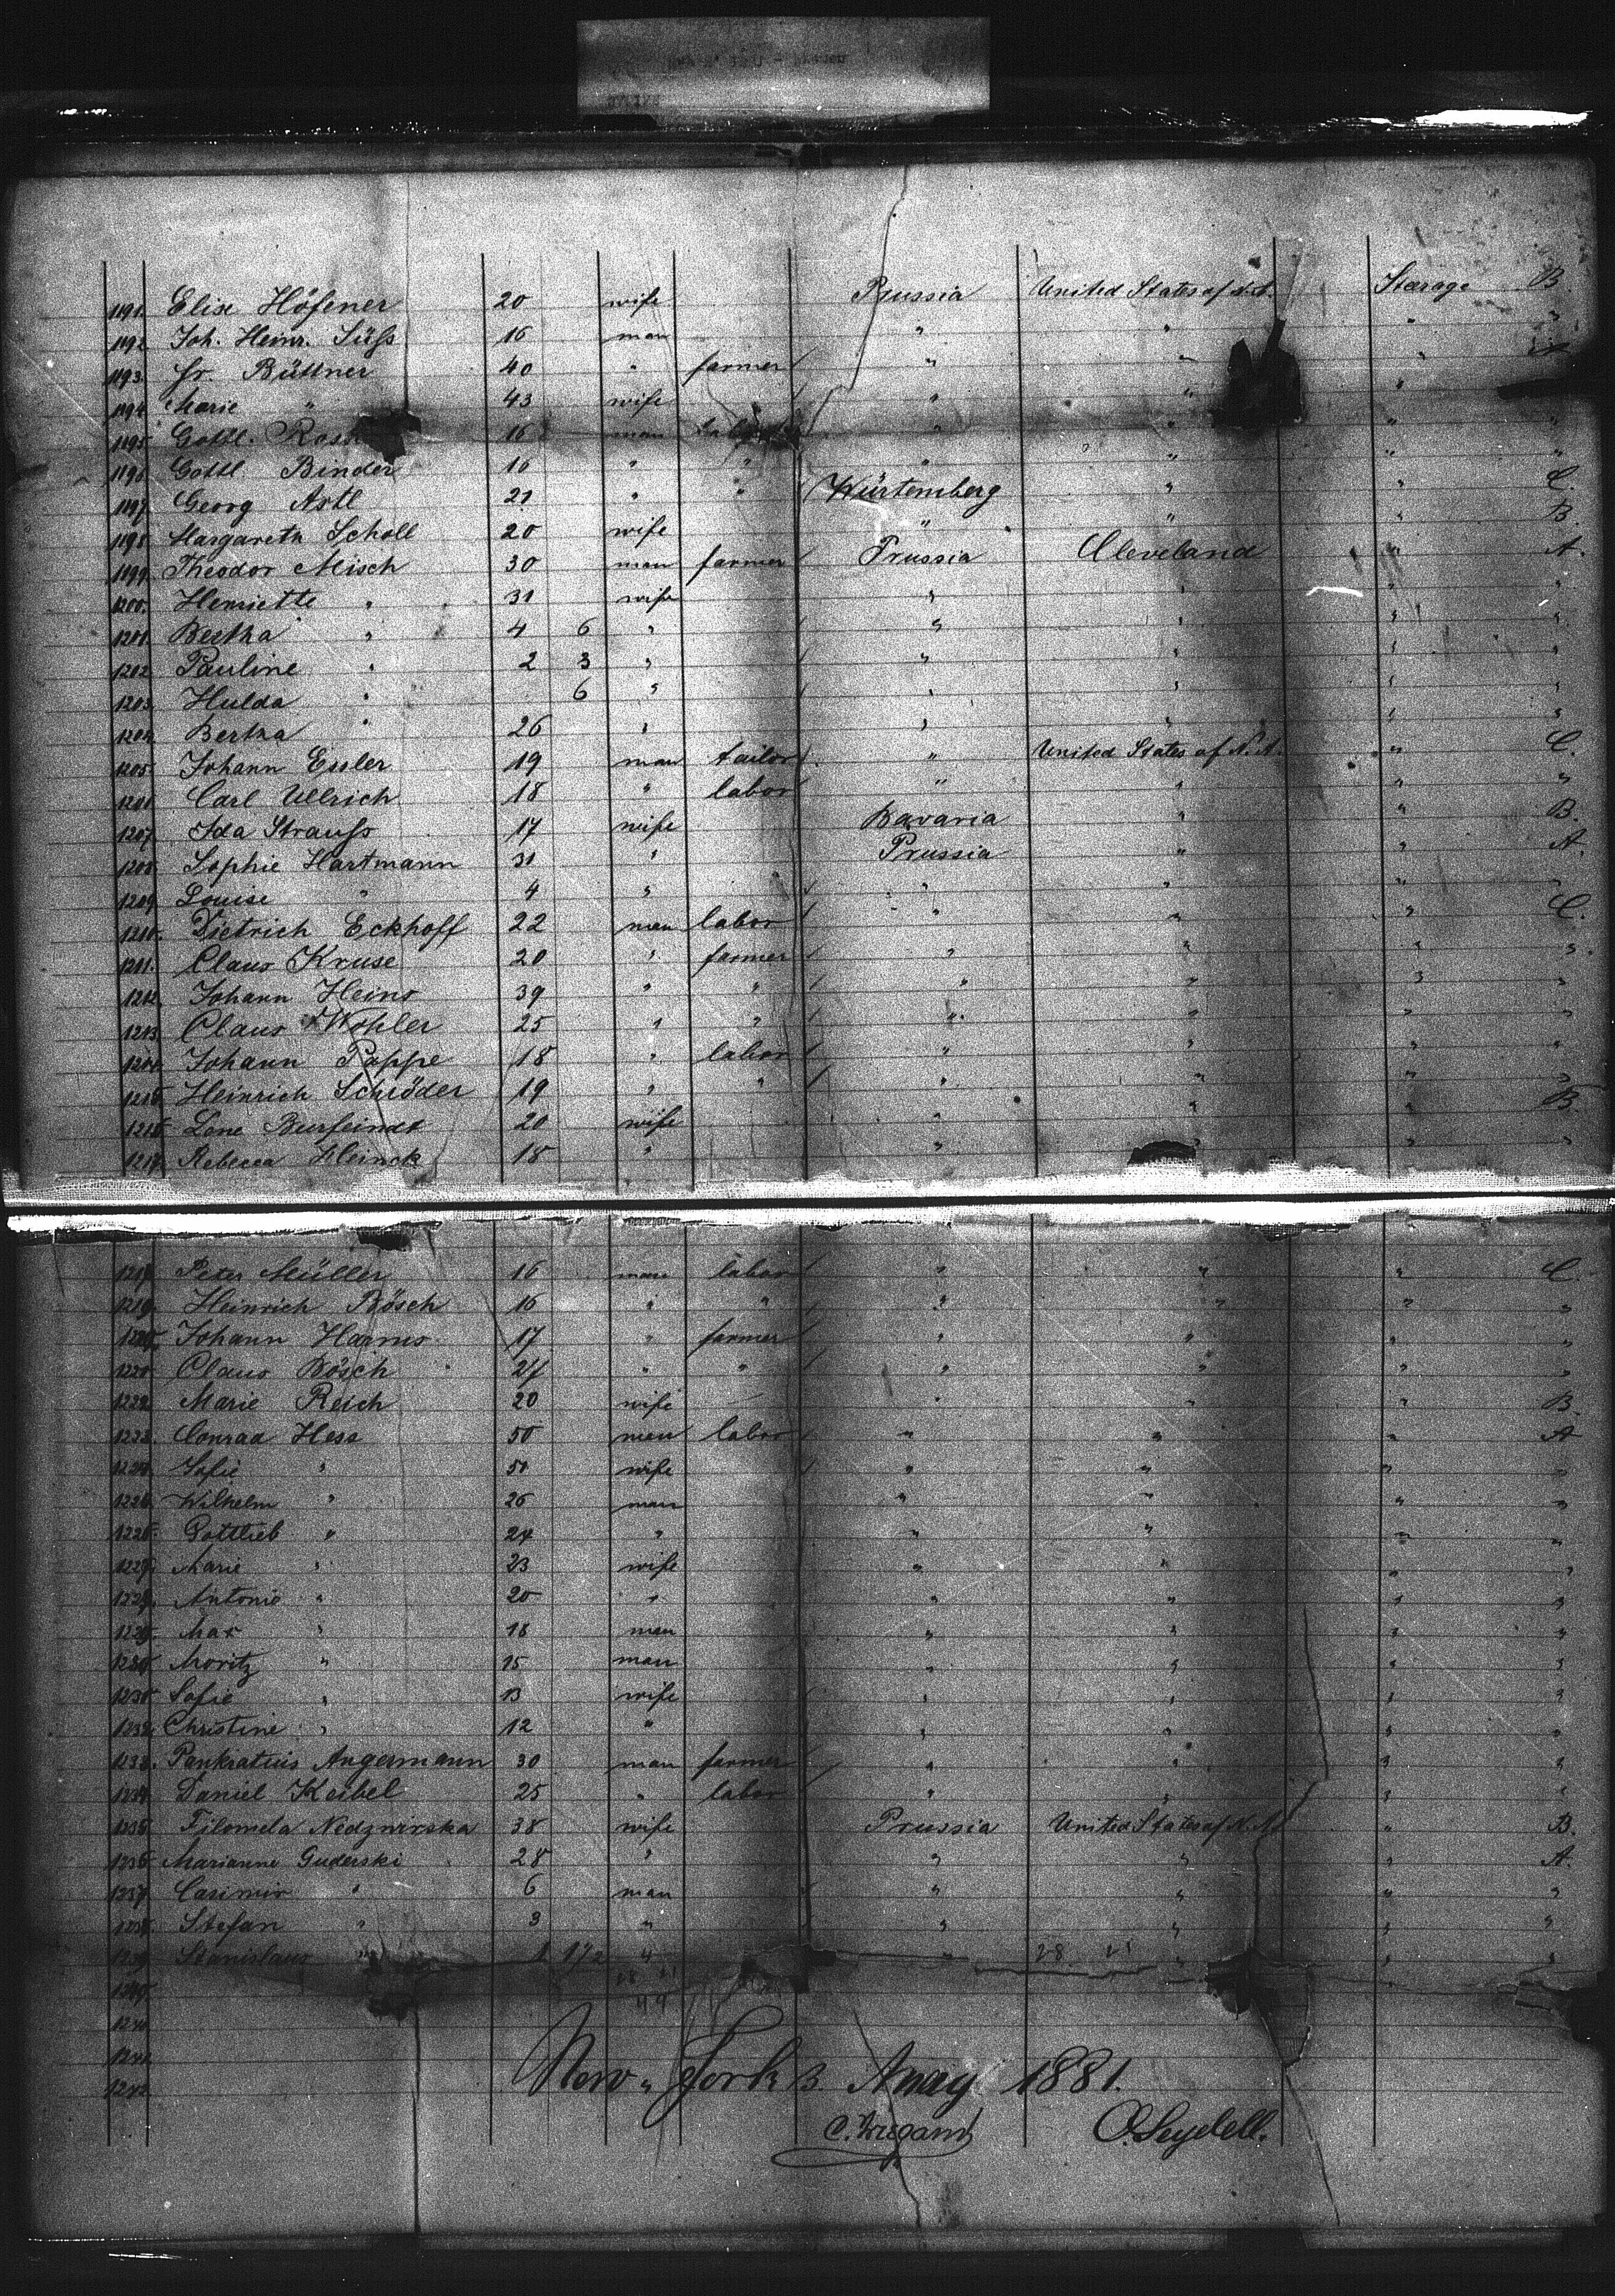 1191. Elise Höfener 20 wife Prussia United States of N.A. Stearage B.
1192. Joh. Heinr. Süss 16 man " " " "
1193. Fr. Büttner 40 " farmer " " " A
1194. Marie " 43 wife " " "
1195. Gottl. 16 man labor " " " "
1196. Gottl. Binder 16 " " " " " "
1197. Georg Astl 21 " " Würtemberg " " C.
1198. Margareta Scholl 20 wife " " " B.
1199. Theodor Misch 30 man farmer Prussia Cleveland " A.
1200. Henriette " 31 wife " " " "
1201. Bertha " 4 6 " " " " "
1202. Pauline " 2 3 " " " " "
1203. Hulda " 6 " " " " "
1204. Bertha " 26 " " " " "
1205. Johann Essler 19 man tailor " United States of N.A. " C.
1206 Carl Ullrich 18 " labor " " " "
1207. Ida Strauss 17 wife Bavaria " " B.
1208. Sophie Hartmann 31 " Prussia " " A.
1209 Louise " 4 " " " " "
1210. Dietrich Eckhoff 22 man labor " " " C.
1211. Claus Kruse 20 " farmer " " " "
1212. Johann Heins 39 " " " " " "
1213. Claus Wohler 25 " " " " " "
1214. Johann Poppe 18 " labor " " " "
1215. Heinrich Schröder 19 " " " " " "
1216 Lene Burfeindt 20 wife " " " B
1217. Rebecca Heinck 18 " " " " "
Peter Müller 16 man labor " " " C.
1219. Heinrich Bösch 16 " " " " " "
Johann Harms 17 " farmer " " " "
Claus Bösch 21 " " " " " "
1222. Marie Reich 20 wife " " " B.
1223. Conrad Hess 50 man labor " " " A
1224. Sofie " 51 wife " " " "
Wilhelm " 26 man " " " "
1226. Gottlieb " 24 " " " " "
1227. Marie " 23 wife " " " "
Antonie " 20 " " " " "
1229. Max " 18 man " " " "
1230. Moritz " 15 man " " " "
Sofie " 13 wife " " " "
1232. Christine " 12 " " " " "
1233. Pankratius Angermann 30 man farmer " " " "
1234. Daniel Keibel 25 " labor " " " "
1235. Filomela Nedzwirska 38 wife Prussia United States of N.A. " B.
1236. Marianne Guderski 28 " " " " A.
1237. Casimir " 6 man " " " "
1238. Stefan " 3 " " " " "
1239. Stanislaus " 1 1/2 " " " " "
1240.
1242
New-York 3. May 1881.
C. Wiegand O. Seydell.